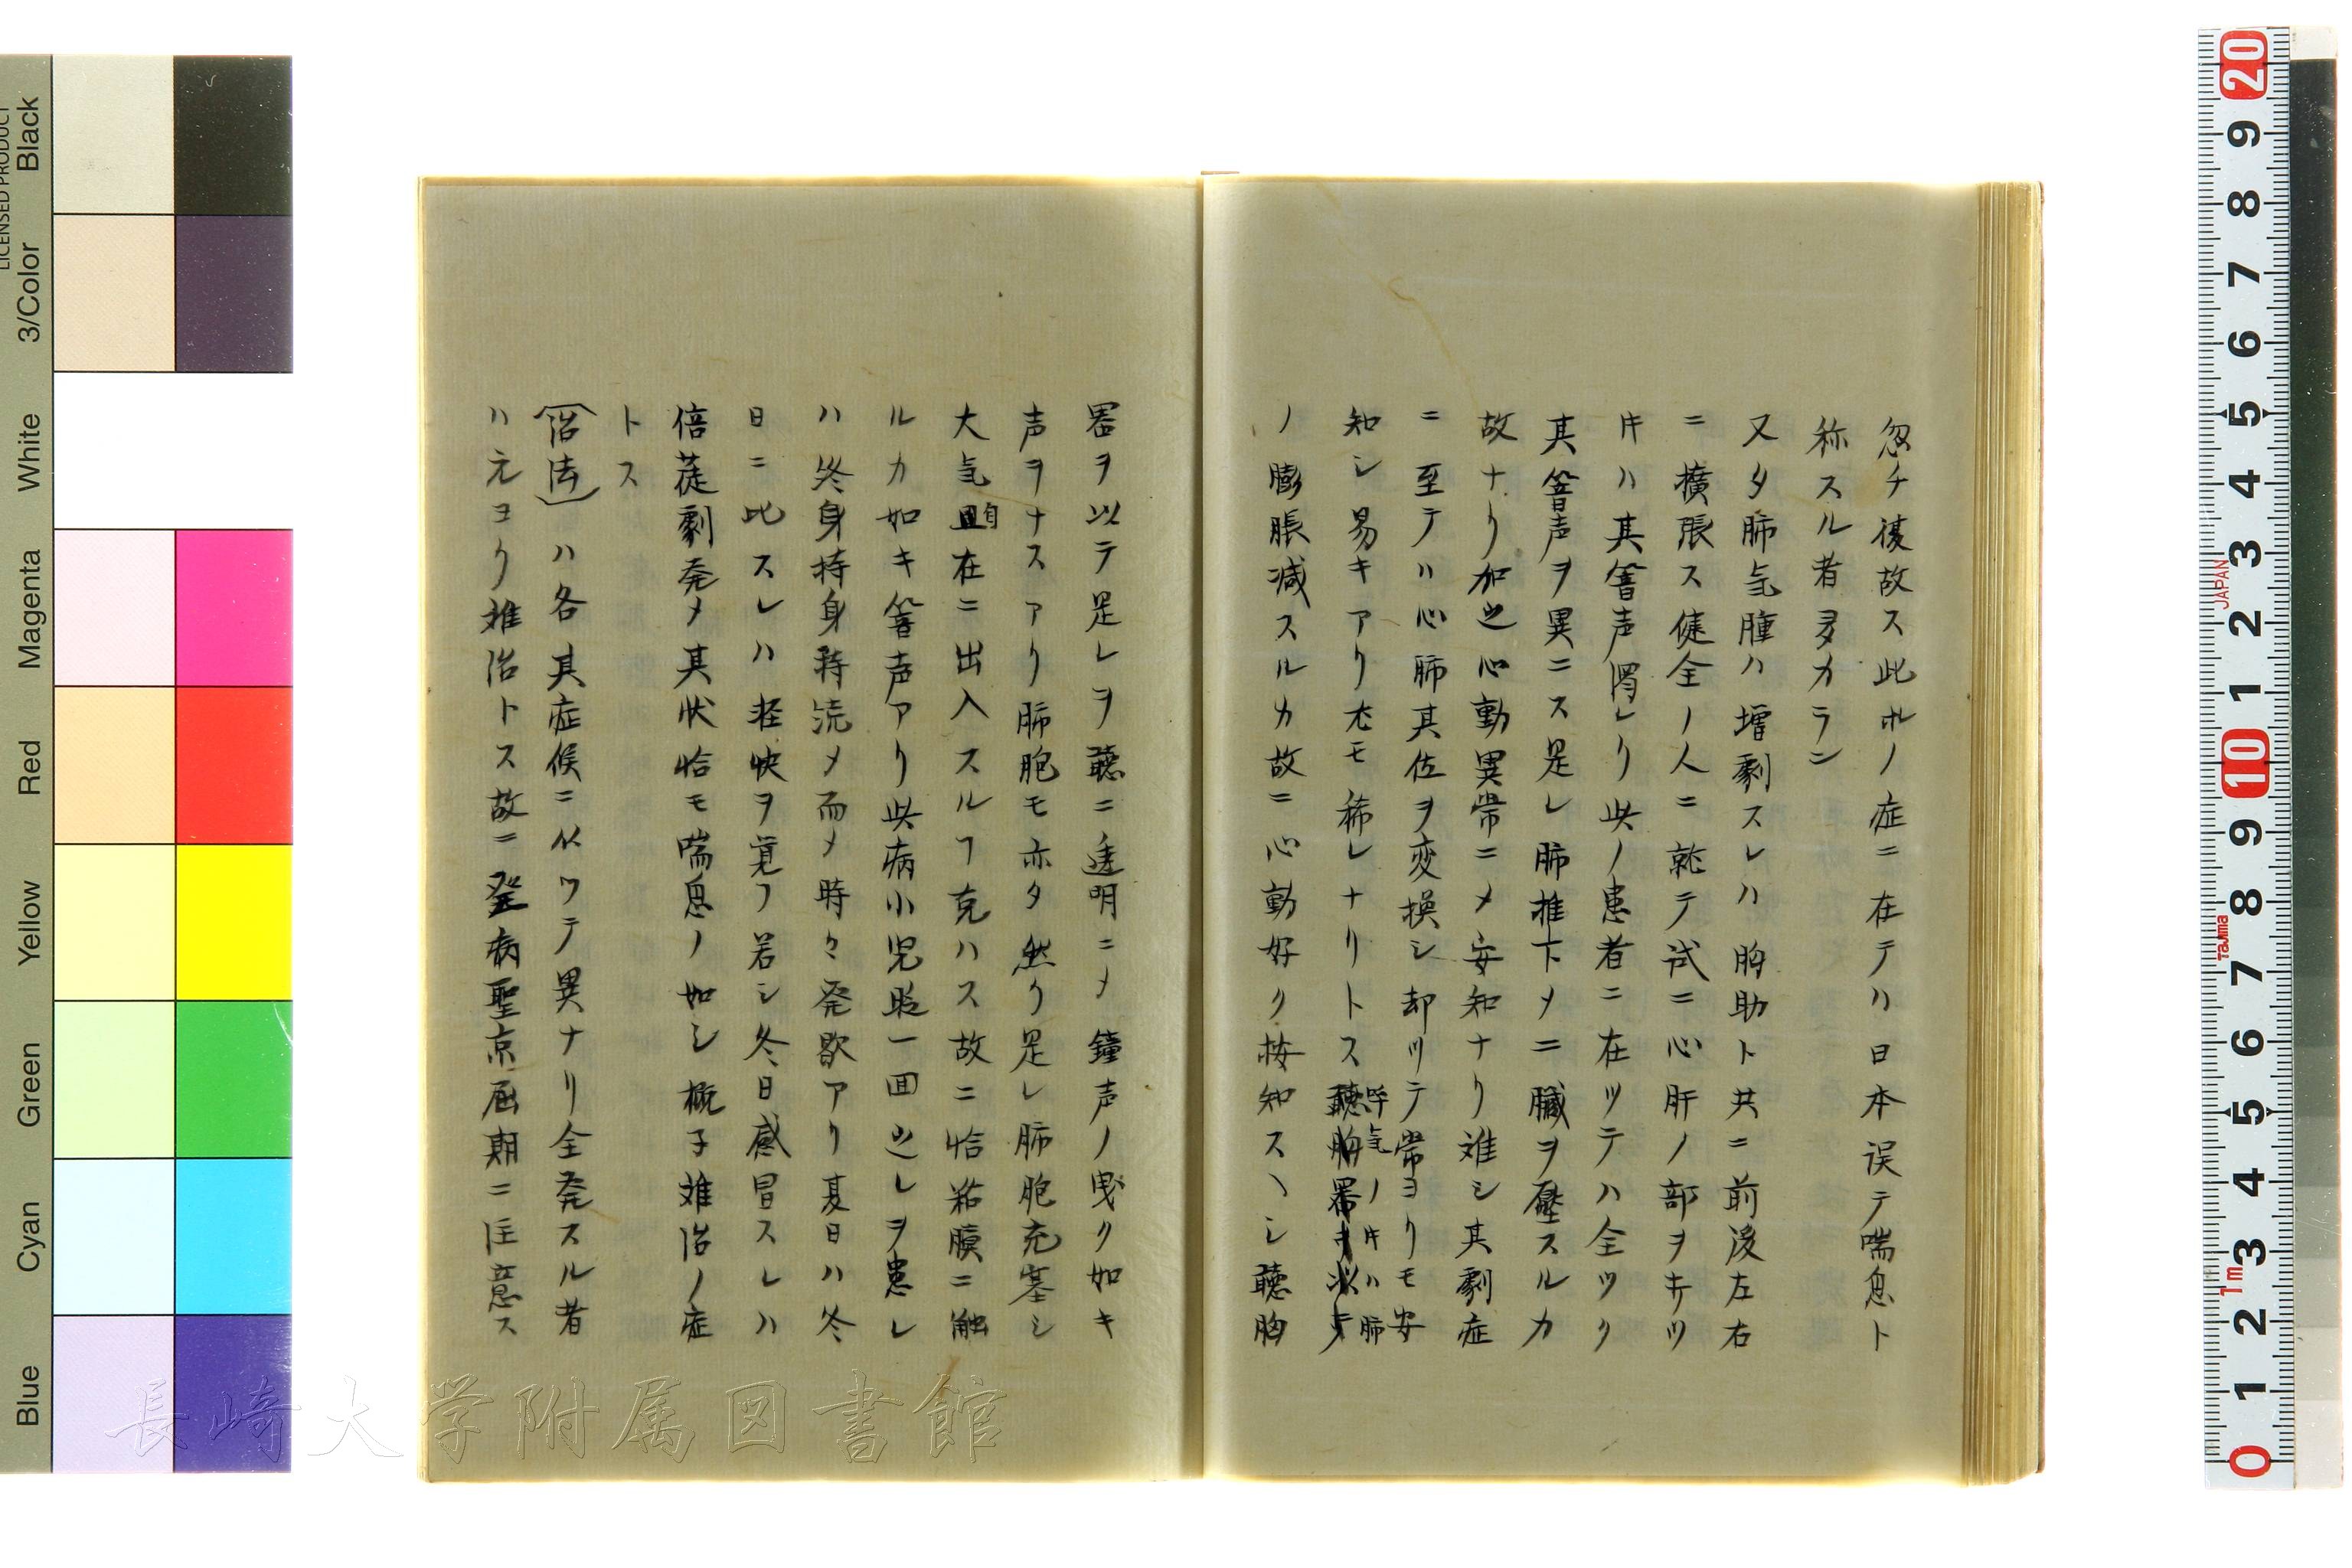 忽チ復故ス此ホノ症ニ在テハ日本误テ喘息ト
称スル者多カラン
又タ肺気腫ハ増劇スレハ胸肋ト共ニ前後左右
ニ擴張ス健全ノ人ニ就テ試ニ心肝ノ部ヲキツ
キハ其響声濁レリ此ノ患者ニ在ツテハ全ツク
其響声ヲ異ニス是レ肺推下メニ臓ヲ壓スルカ
故ナリ加之心動異常ニメ安知ナリ難シ其劇症
ニ至テハ心肺其位ヲ変換シ却ツテ常ヨリモ安
知シ易キアリ尤モ稀レナリトス
呼気ノキハ肺
ノ膨脹減スルカ故ニ心動好ク按知スヽシ聴胸
器ヲ以テ是レヲ聴ニ透明ニメ鐘声ノ曳ク如キ
声ヲナスアリ肺胞モ亦タ然り是レ肺胞充塞シ
大気自在ニ出入スルヿ克ハス故ニ恰粘膜ニ触
ルカ如キ響声アリ此病小児時一回之レヲ患レ
ハ終身持身持続メ而メ時々発歇アリ夏日ハ冬
日ニ比スレハ軽快ヲ覚フ若シ冬日感冒スレハ
倍蓰劇発メ其状恰モ喘息ノ如シ概子難治ノ症
トス
(治法)ハ各其症候ニ从ツテ異ナリ全発スル者
ハ元ヨリ難治トス故ニ発病聖京届期ニ注意ス
Black
3/Color
White
Magenta
Red
Yellow
Green
Cyan
Blue
LICENSED PRODUCT
20
9
8
7
6
5
4
3
2
1
10
9
8
7
6
5
4
3
2
1
0
JAPAN
Tajima
1m
長崎大学附属図書館